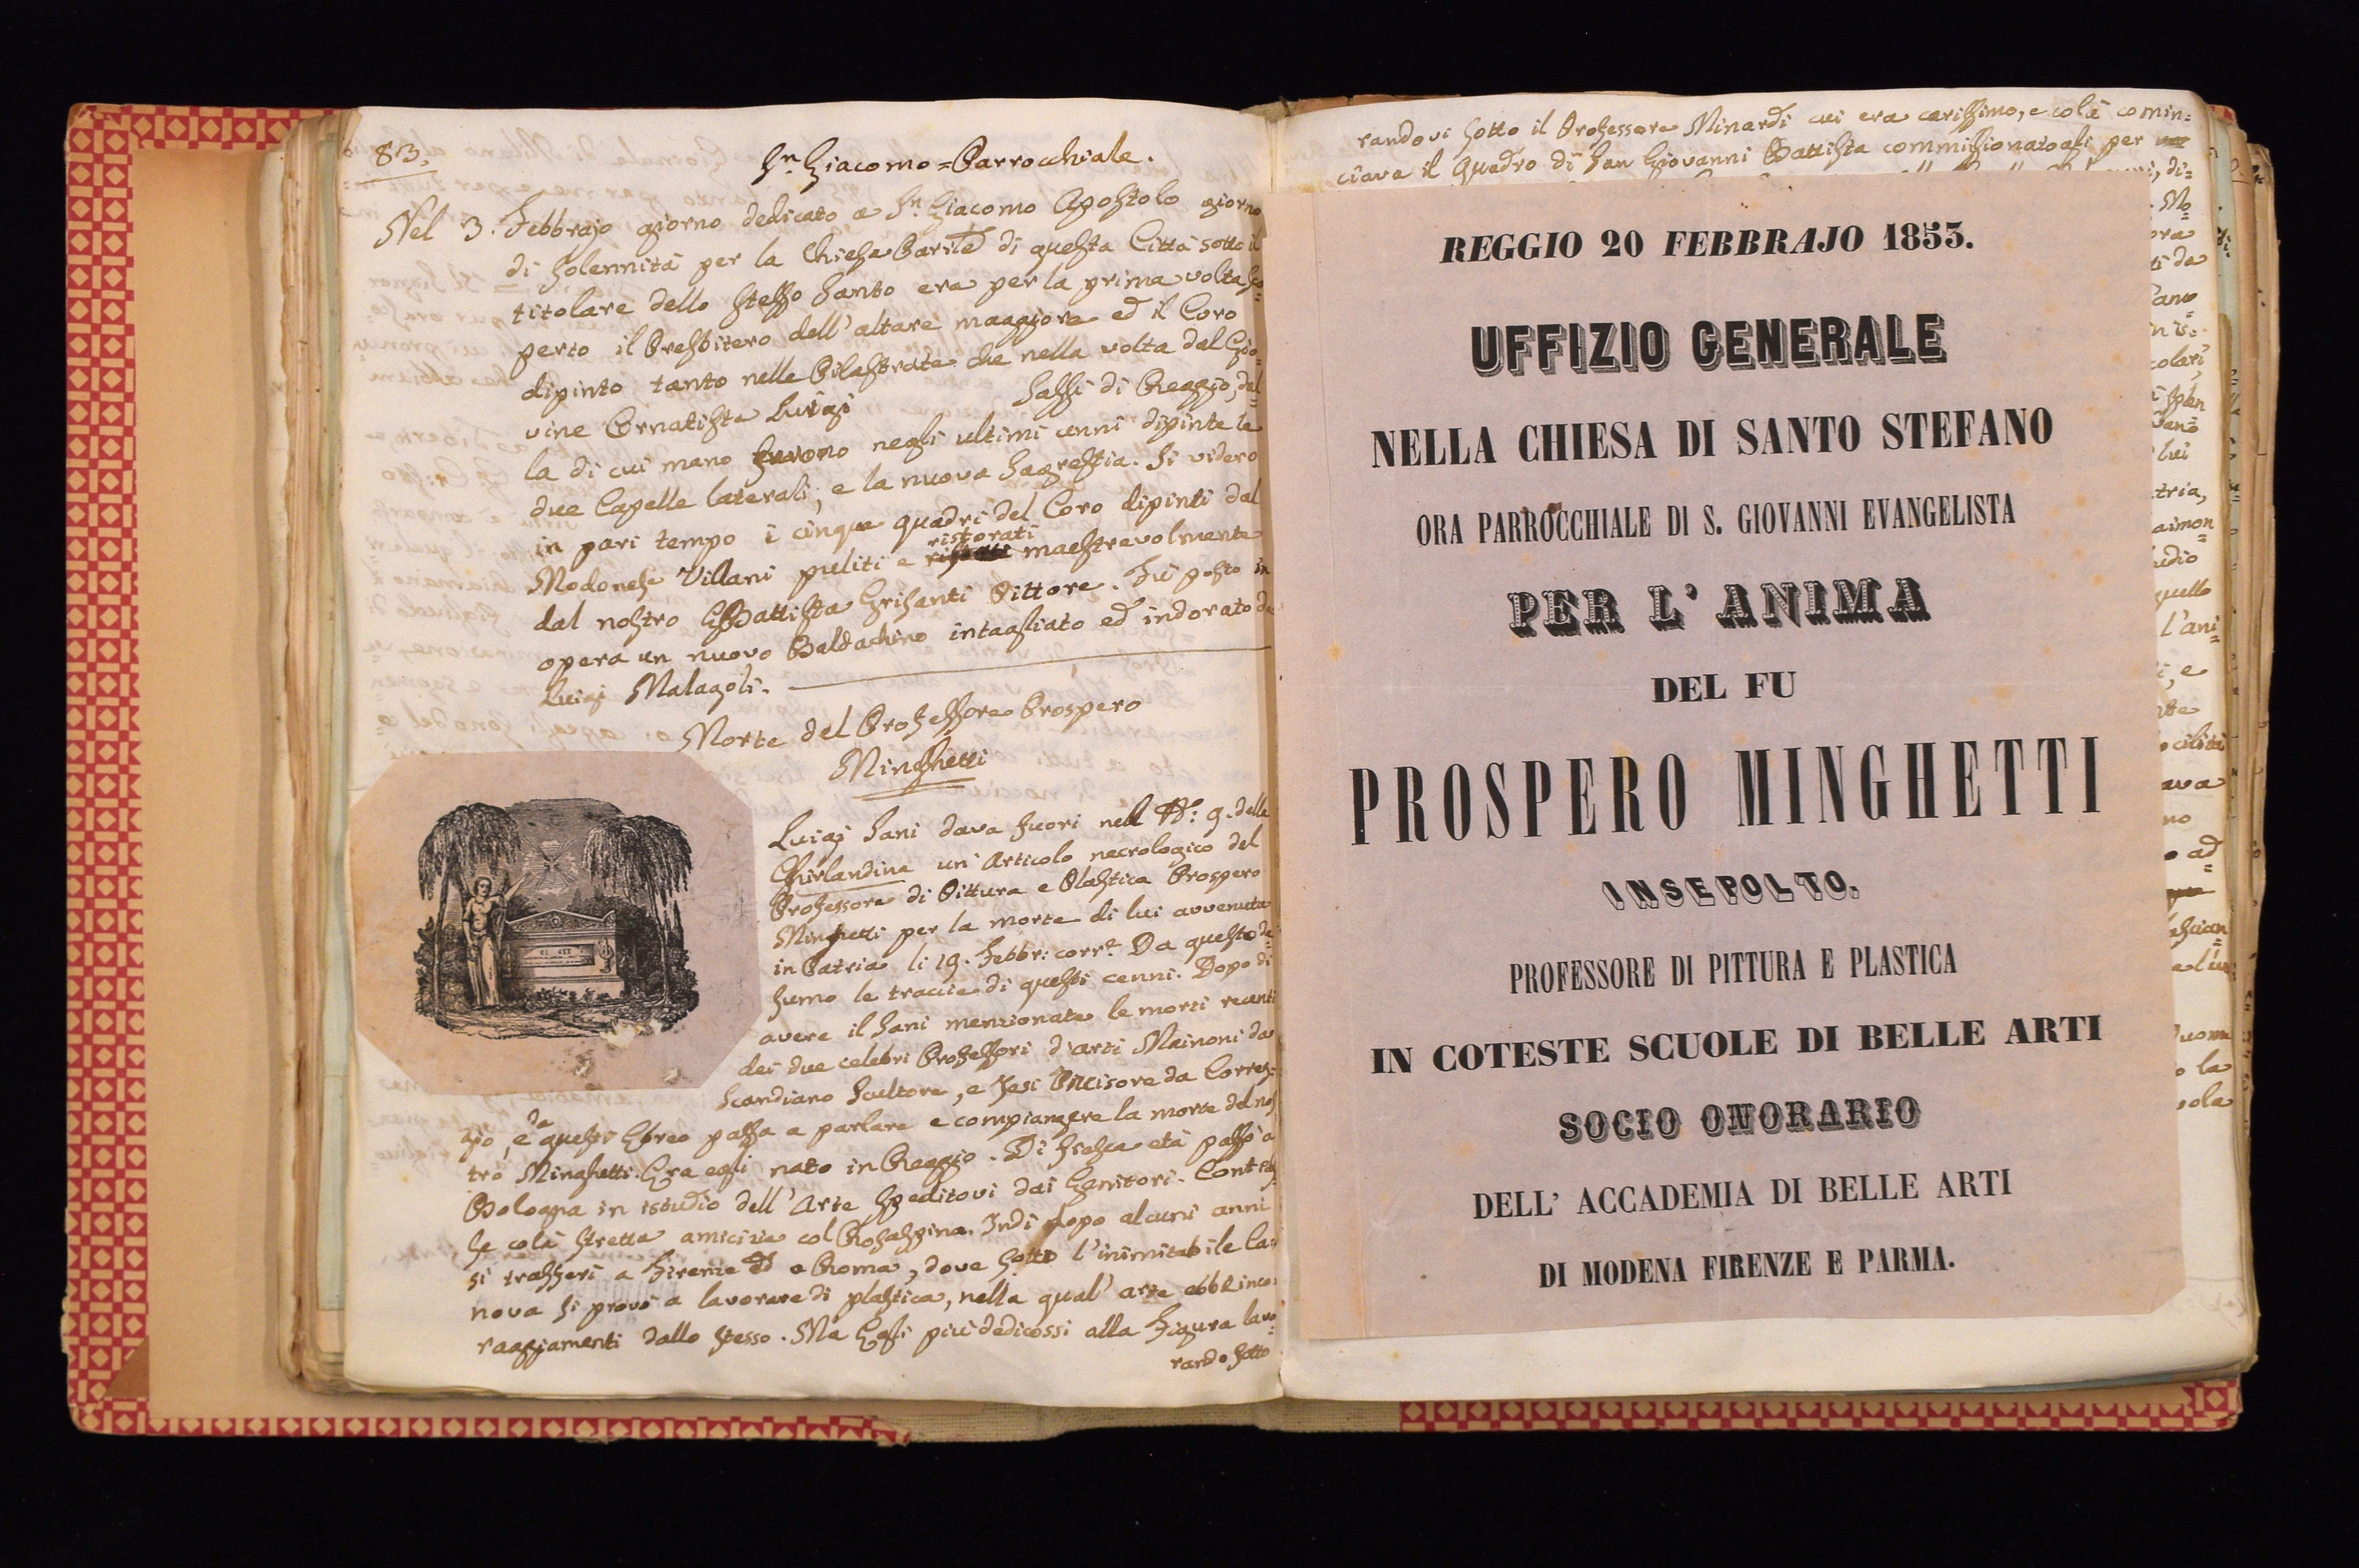 83.
Sn. Giacomo = Parrocchiale.
Nel 3. Febbrajo giorno dedicato a Sn. Giacomo Apostolo giorno
di Solennità per la Chiesa Parrle di questa Città sotto il
titolare dello stesso Santo era per la prima volta sco=
perto il Presbitero dell'altare maggiore ed il Coro
dipinto tanto nelle Pilastrate che nella volta dal Gio=
vine Ornatista Luigi Salsi di Reggio, dal=
la di cui mano furono negli ultimi anni dipinte le
due Capelle laterali, e la nuova Sagrestia. Si videro
in pari tempo i cinque quadri del Coro dipinti dal
Modonese Villani puliti e ristorati maestrevolmente
dal nostro GBattista Grisanti Pittore. Fù posto in
opera un nuovo Baldachino intagliato ed indorato da
Luigi Malagoli.
Morte del Professore Prospero
Minghetti
Luigi Sani dava fuori nell N°: 9. della
Ghirlandina un'Articolo necrologico del
Professore di Pittura e Plastica Prospero
Minghetti per la morte di lui avvenuta
in Patria li 19. Febbr: corre. Da questo de=
sumo le traccie di questi cenni. Dopo di
avere il Sani menzionate le morti recenti
dei due celebri Professori d'arti Mainoni da
Scandiano Scultore, e Jesi Incisore da Correg=
gio, e da questi Ebreo passa a parlare e compiangere la morte del nos
tro Minghetti. Era egli nato in Reggio. Di fresca età passò a
Bologna in istudio dell'Arte speditovi dai Genitori. Contras
se colà stretta amicizia col Rosaspina. Indi dopo alcuni anni
si trasferì a Firenze ed a Roma, dove sotto l'inimitabile Ca=
nova si provò a lavorare di plastica, nella qual'arte ebbe inco=
raggiamenti dallo stesso. Ma Egli più dedicossi alla Figura lavo=
rando sotto
randovi sotto il Professore Minardi cui era carissimo, e colà comin=
ciava il quadro di San Giovanni Battista commissionatogli per
REGGIO 20 FEBBRAJO 1853.
UFFIZIO GENERALE
NELLA CHIESA DI SANTO STEFANO
ORA PARROCCHIALE DI S. GIOVANNI EVANGELISTA
PER L' ANIMA
DEL FU
PROSPERO MINGHETTI
INSEPOLTO.
PROFESSORE DI PITTURA E PLASTICA
IN COTESTE SCUOLE DI BELLE ARTI
SOCIO ONORARIO
DELL' ACCADEMIA DI BELLE ARTI
DI MODENA FIRENZE E PARMA.